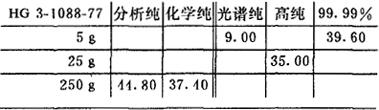 HG 3-1088-77 分析纯 化学纯 光谱纯 高纯 99.99%
5 g 9.00 39.60
25 g 35.00
250 g 44.80 37.40